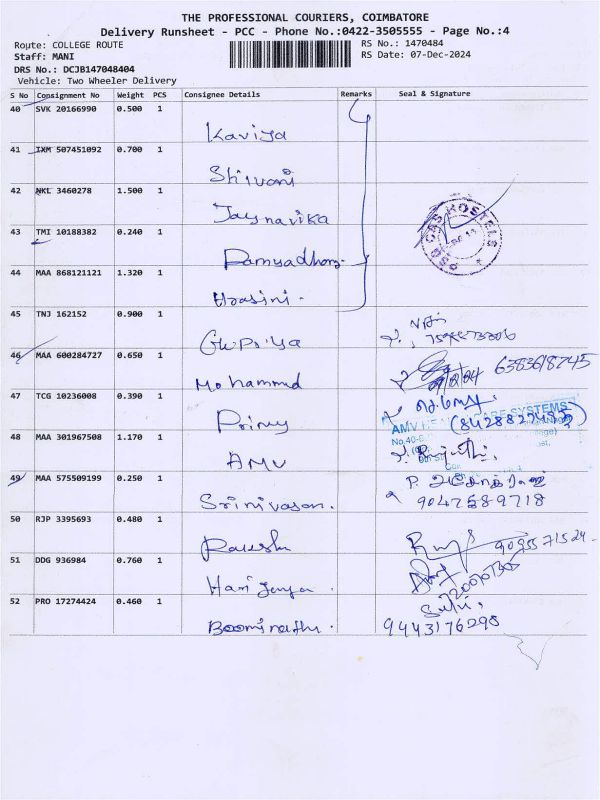 THE PROFESSIONAL COURIERS, COIMBATORE
Delivery Runsheet - PCC - Phone No.:0422-3505555 - Page No.:4
Route: COLLEGE ROUTE RS No.: 1470484
Staff: MANI RS Date: 07-Dec-2024
DRS No.: DCJB147048404
Vehicle: Two Wheeler Delivery
S No Consignment No Weight PCS Consignee Details Remarks Seal & Signature
40 SVK 20166990 0.500 1
Kaviya
41 IXM 507451092 0.700 1
Shivani
42 NKL 3460278 1.500 1
Jaysnavika
43 TMI 10188382 0.240 1
HOSTELS
44 MAA 868121121 1.320 1
Hrasini.
45 TNJ 162152 0.900 1
46 MAA 600284727 0.650 1 6383618745
Mohammed
47 TCG 10236008 0.390 1
AMV
48 MAA 301967508 1.170 1
AMV
49 MAA 575509199 0.250 1
Srinivasan. 9047589718
50 RJP 3395693 0.480 1
Rakesh
51 DDG 936984 0.760 1
52 PRO 17274424 0.460 1
Boominathu. 9443176298